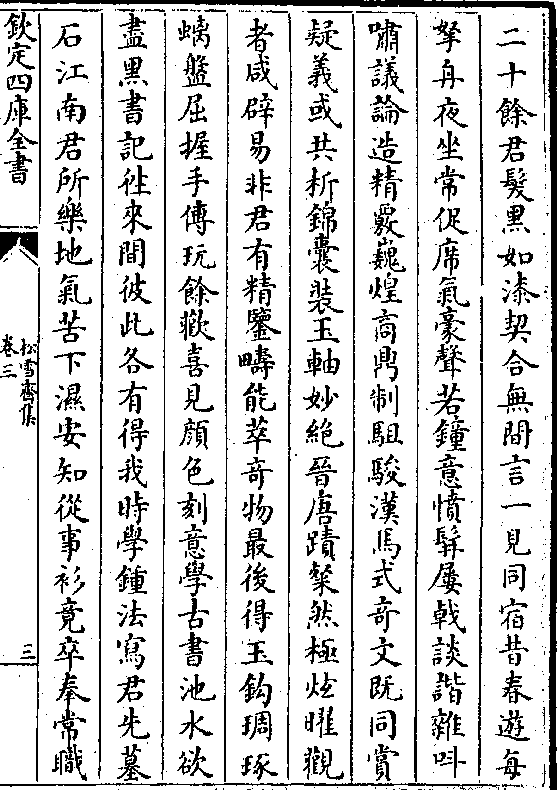 二十餘君髮黑如漆契合無間言一見同宿昔春遊每
拏舟夜坐常促席氣豪聲若鐘意憤髯屢戟談諧雜叫
嘯議論造精覈巍煌商鼎制駔駿漢馬式奇文既同賞
疑義或共析錦囊裝玉軸妙絕晉唐蹟粲然極炫曜觀
者咸辟易非君有精鑒疇能萃奇物最後得玉鈎琱琢
螭盤屈握手傳玩餘歡喜見顏色刻意學古書池水欲
盡黑書記往來間彼此各有得我時學鍾法寫君先墓
石江南君所樂地氣苦下濕安知從事衫竟卒奉常職
欽定四庫全書
松雪齋集
卷三
三